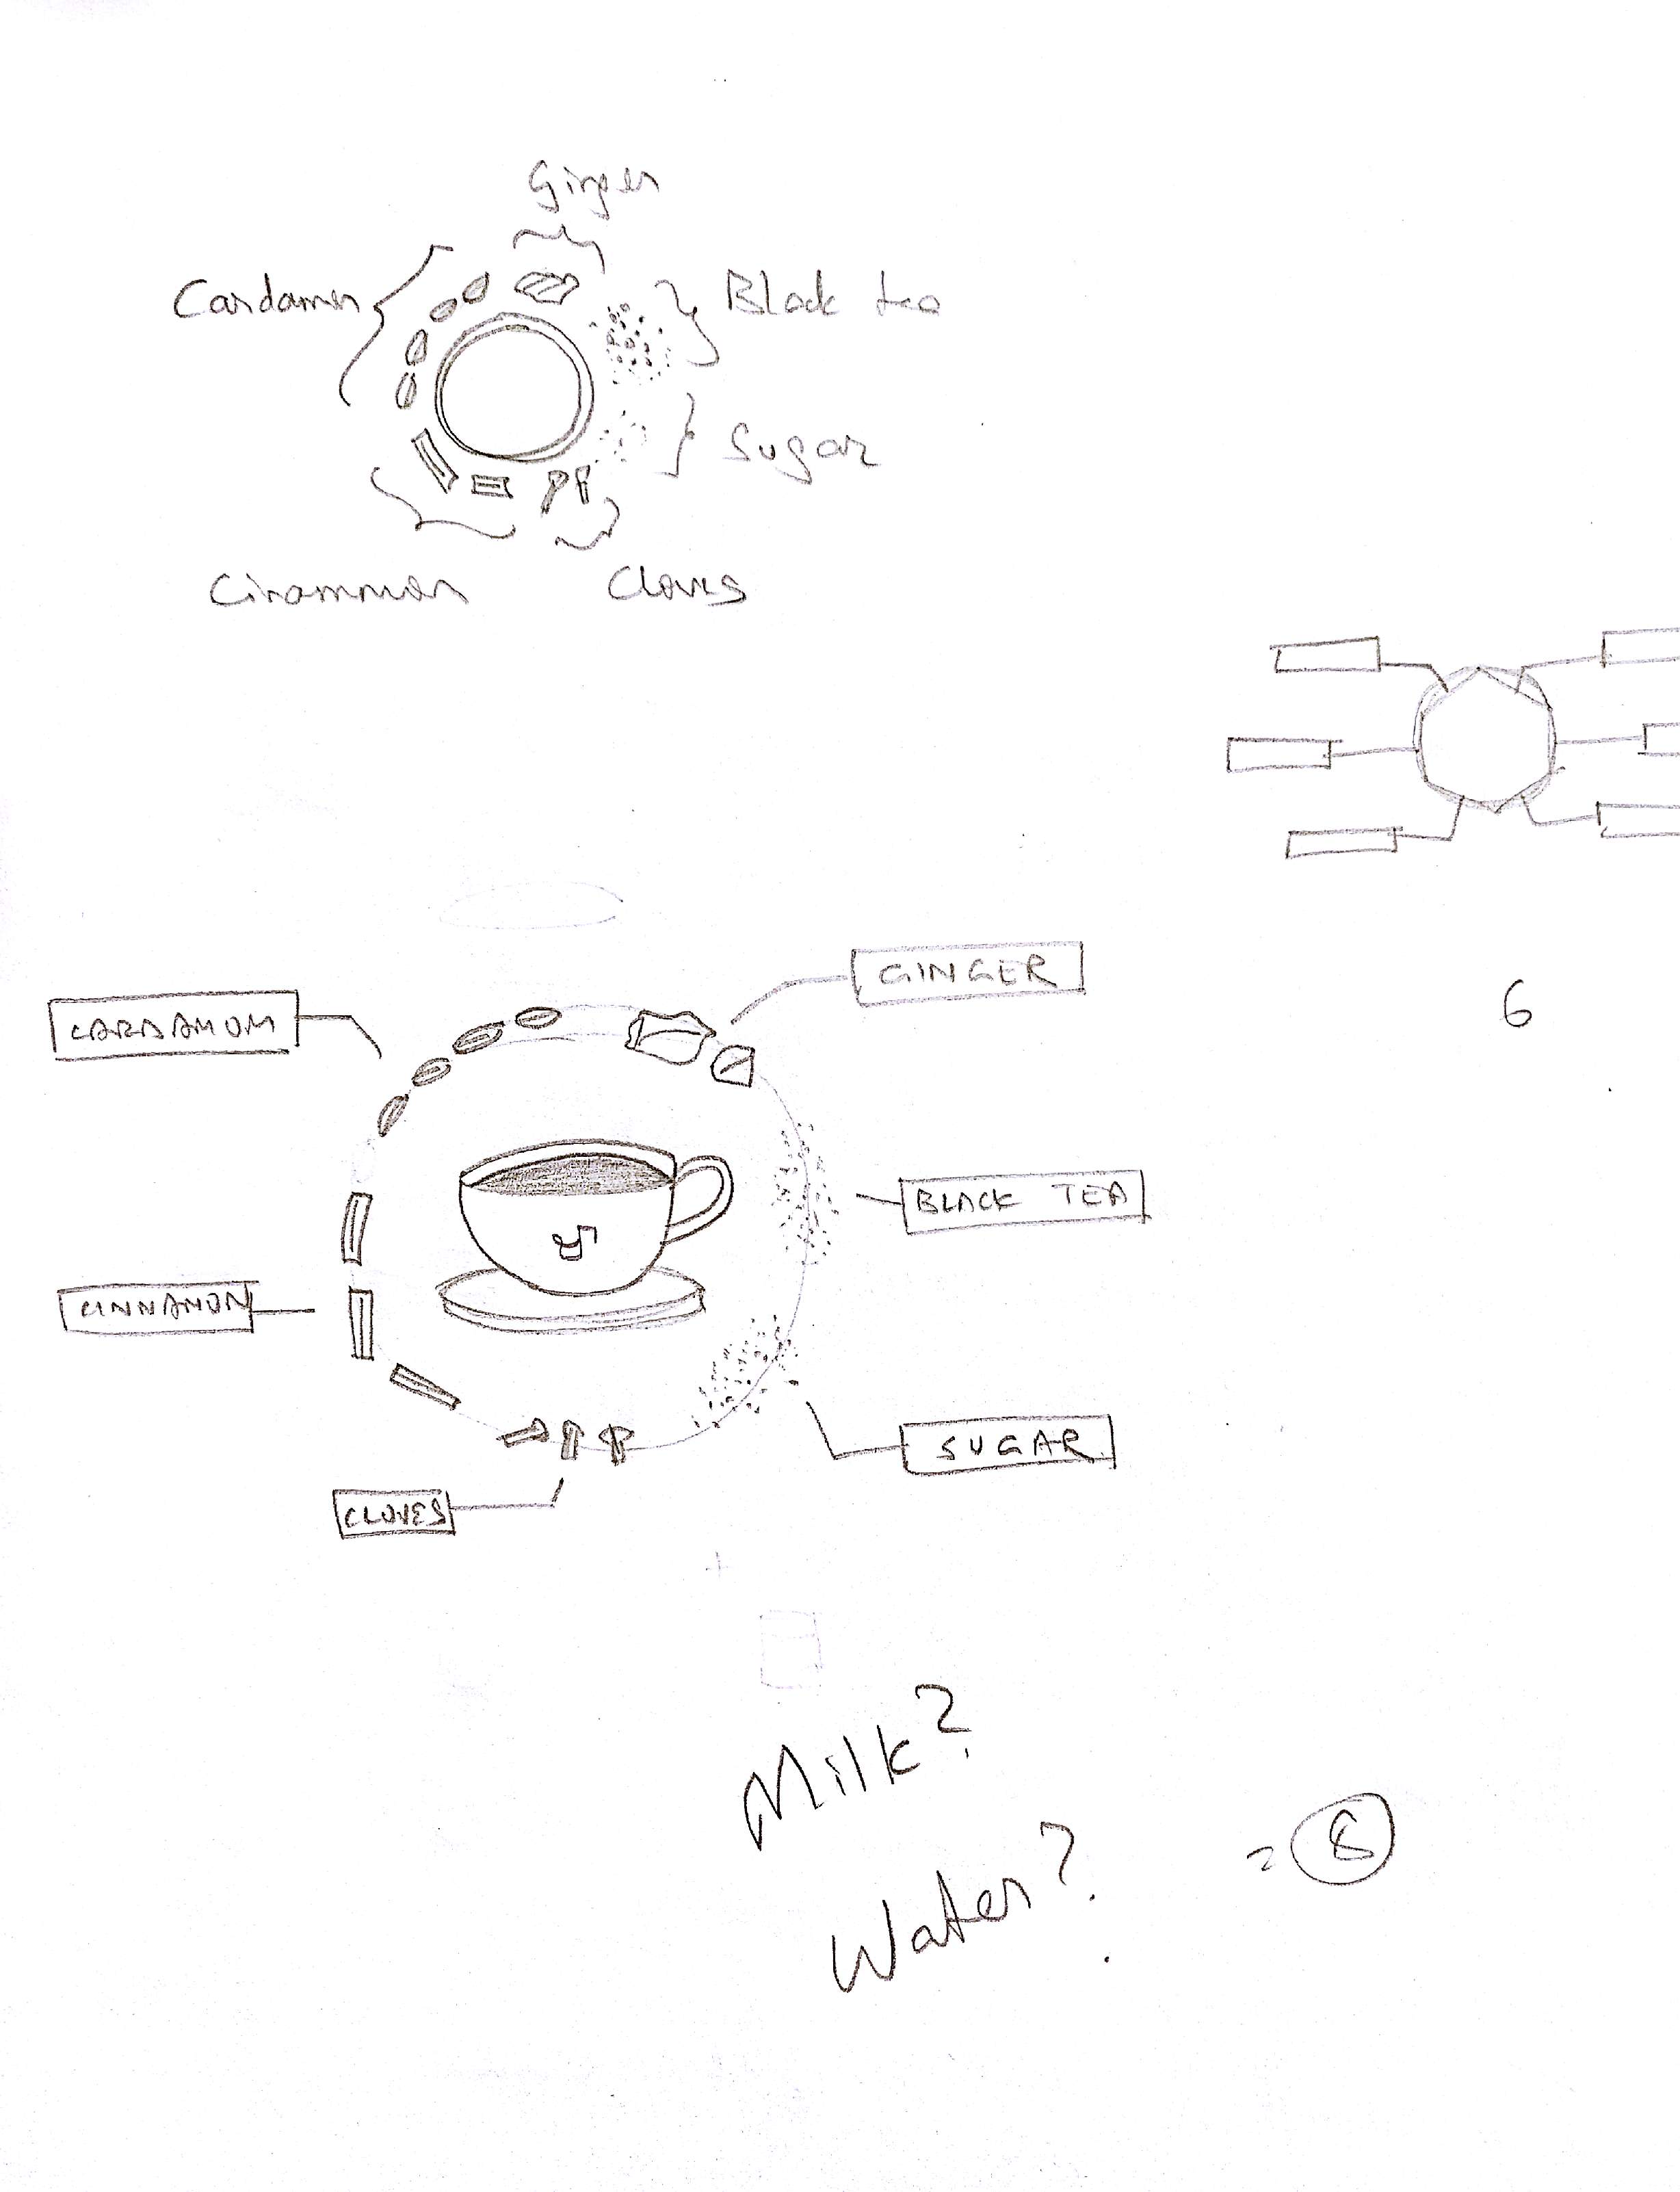 Ginger
Black tea
Sugar
Cloves
CARDAMOM
GINGER
6
BLACK TEA
CINNAMON
SUGAR
CLOVES
Milk?
Water?
= 8